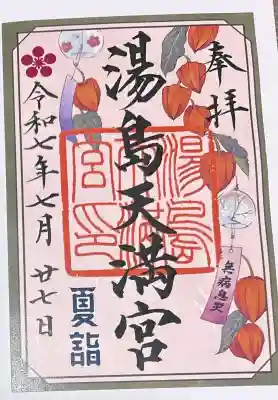 奉拝
湯島天満宮
令和七年七月廿七日
夏詣
無病息災
湯島天満宮印